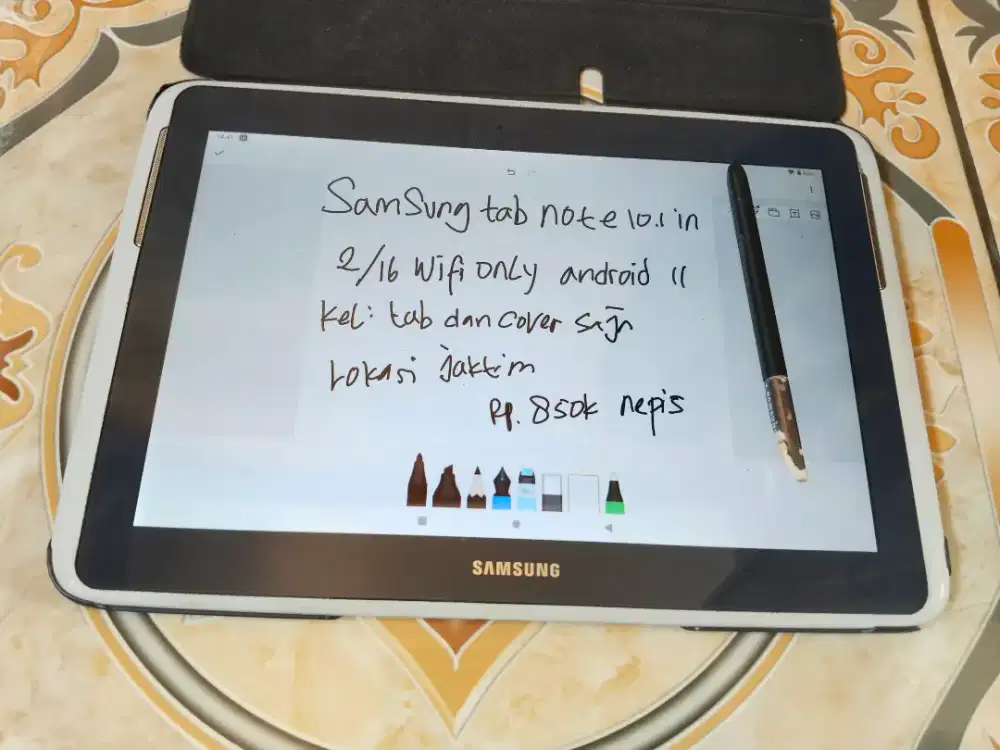 Samsung tab note 10.1 in
2/16 Wifi only android 11
Kel: tab dan cover saja
Lokasi jaktim
Rp. 850k nepis
SAMSUNG